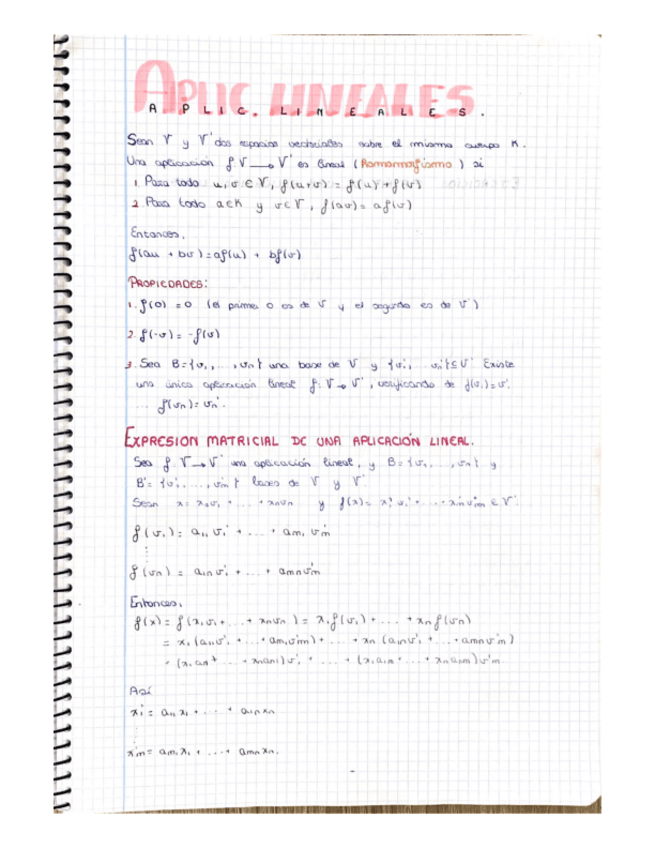 APLIC. LINEALES
APLIC. LINEALES.
Sean V y V' dos espacios vectoriales sobre el mismo cuerpo K.
Una aplicación f V → V' es lineal (Homomorfismo) si
1. Para todo u, v ∈ V, f(u+v) = f(u) + f(v)
2. Para todo a∈K y v∈V, f(av) = af(v)
Entonces,
f(au + bv) = af(u) + bf(v)
PROPIEDADES:
1. f(0) = 0 (el primer 0 es de V y el segundo es de V')
2. f(-v) = -f(v)
3. Sea B={v₁, ..., vn} una base de V y {v'₁, ... v'n}⊆V' Existe
una única aplicación lineal f: V → V', verificando de f(v₁)=v'₁
... f(vn) = vn'.
EXPRESION MATRICIAL DE UNA APLICACIÓN LINEAL.
Sea f V→V' una aplicación lineal, y B={v₁, ..., vn} y
B'= {v'₁, ..., v'm} bases de V y V'
Sean x = x₁v₁ + ... + xnvn y f(x) = x'₁v'₁ + ... + x'mv'm ∈ V'
f(v₁) = a₁₁ v₁' + ... + am₁ v'm
⋮
f(vn) = a₁n v'₁ + ... + amnv'm
Entonces,
f(x) = f(x₁v₁ + ... + xnvn) = x₁f(v₁) + ... + xnf(vn)
= x₁(a₁₁v'₁ + ... + am₁v'm) + ... + xn(a₁nv'₁ + ... + amnv'm)
Así
x'₁ = a₁₁x₁ + ... + a₁nxn
⋮
x'm = am₁x₁ + ... + amnxn.